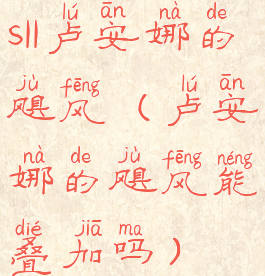 lú ān nà de
sll卢安娜的
jù fēng lú ān
飓风（卢安
nà de jù fēng néng
娜的飓风能
dié jiā ma
叠加吗）